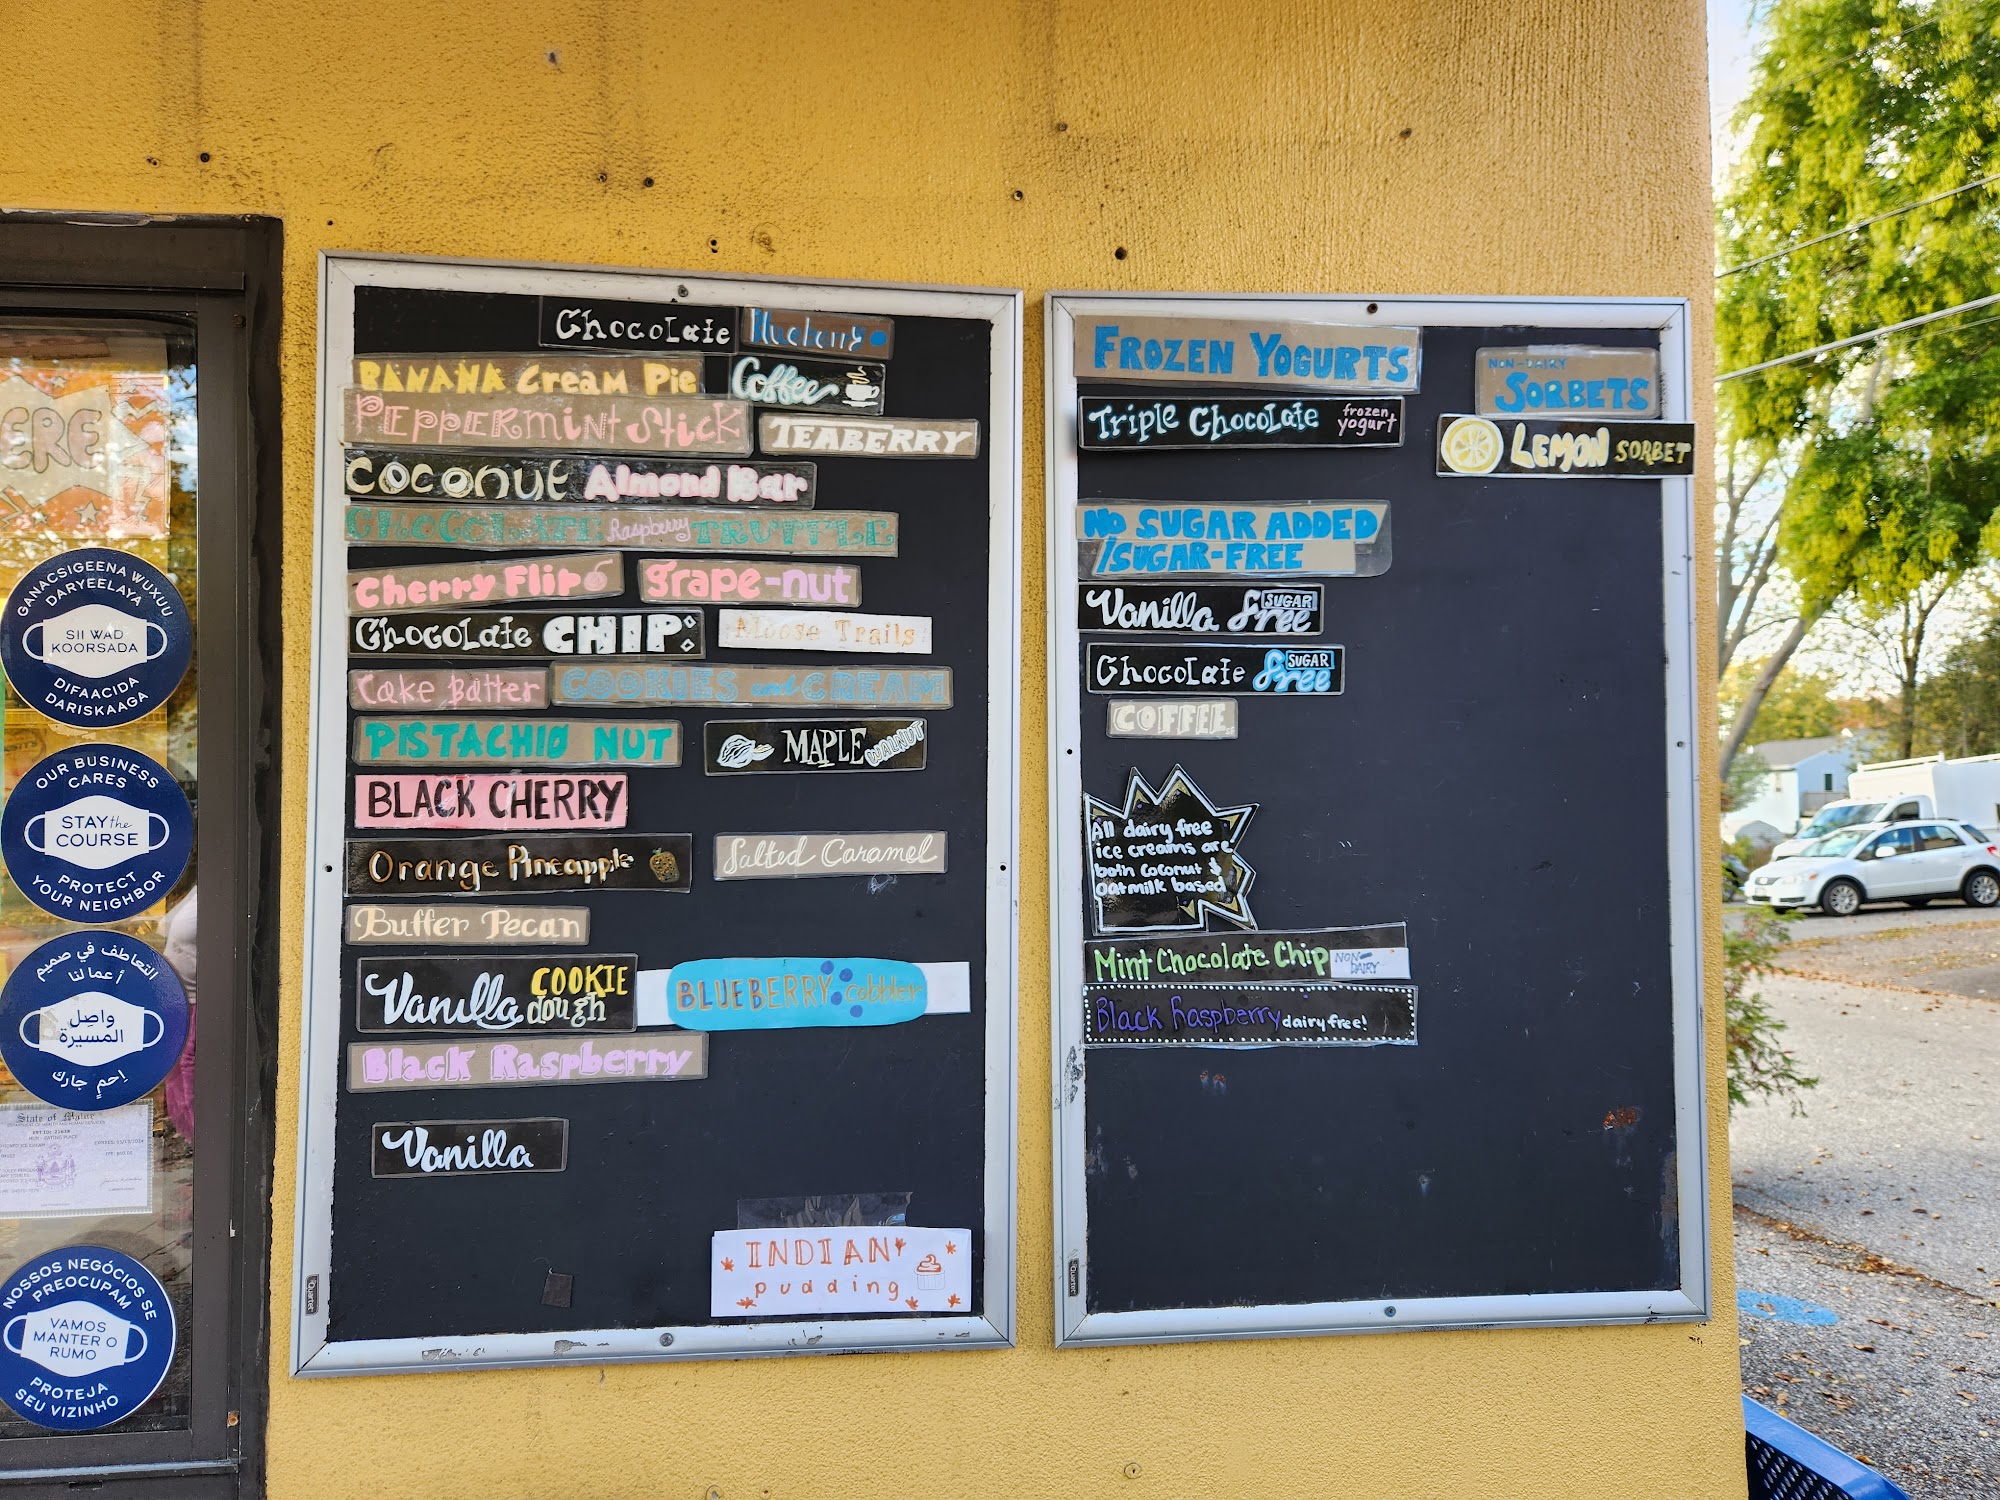 Chocolate Blueberry
BANANA Cream Pie Coffee
PEPPERMINT Stick TEABERRY
COCONUT Almond Bar
CHOCOLATE Raspberry TRUFFLE
Cherry Flip grape-nut
Chocolate CHIP: Moose Trails
Cake Batter COOKIES and CREAM
PISTACHIO NUT MAPLE WALNUT
BLACK CHERRY
Orange Pineapple Salted Caramel
Butter Pecan
Vanilla COOKIE dough BLUEBERRY cobbler
Black Raspberry
Vanilla
INDIAN
pudding
FROZEN YOGURTS
Triple Chocolate frozen yogurt
NON-DAIRY
SORBETS
LEMON SORBET
NO SUGAR ADDED
/SUGAR-FREE
Vanilla SUGAR free
Chocolate SUGAR free
COFFEE
All dairy free
ice creams are
both coconut &
oatmilk based
Mint Chocolate Chip NON-DAIRY
Black Raspberry dairy free!
Quartet
Quartet
ERE
GANACSIGEENA WUXUU
DARYEELAYA
SII WAD
KOORSADA
DIFAACIDA
DARISKAAGA
OUR BUSINESS
CARES
STAY the
COURSE
PROTECT
YOUR NEIGHBOR
التعاطف في صميم
أعمالنا
واصِل
المسيرة
اِحمِ جارك
State of Maine
NOSSOS NEGÓCIOS SE
PREOCUPAM
VAMOS
MANTER O
RUMO
PROTEJA
SEU VIZINHO